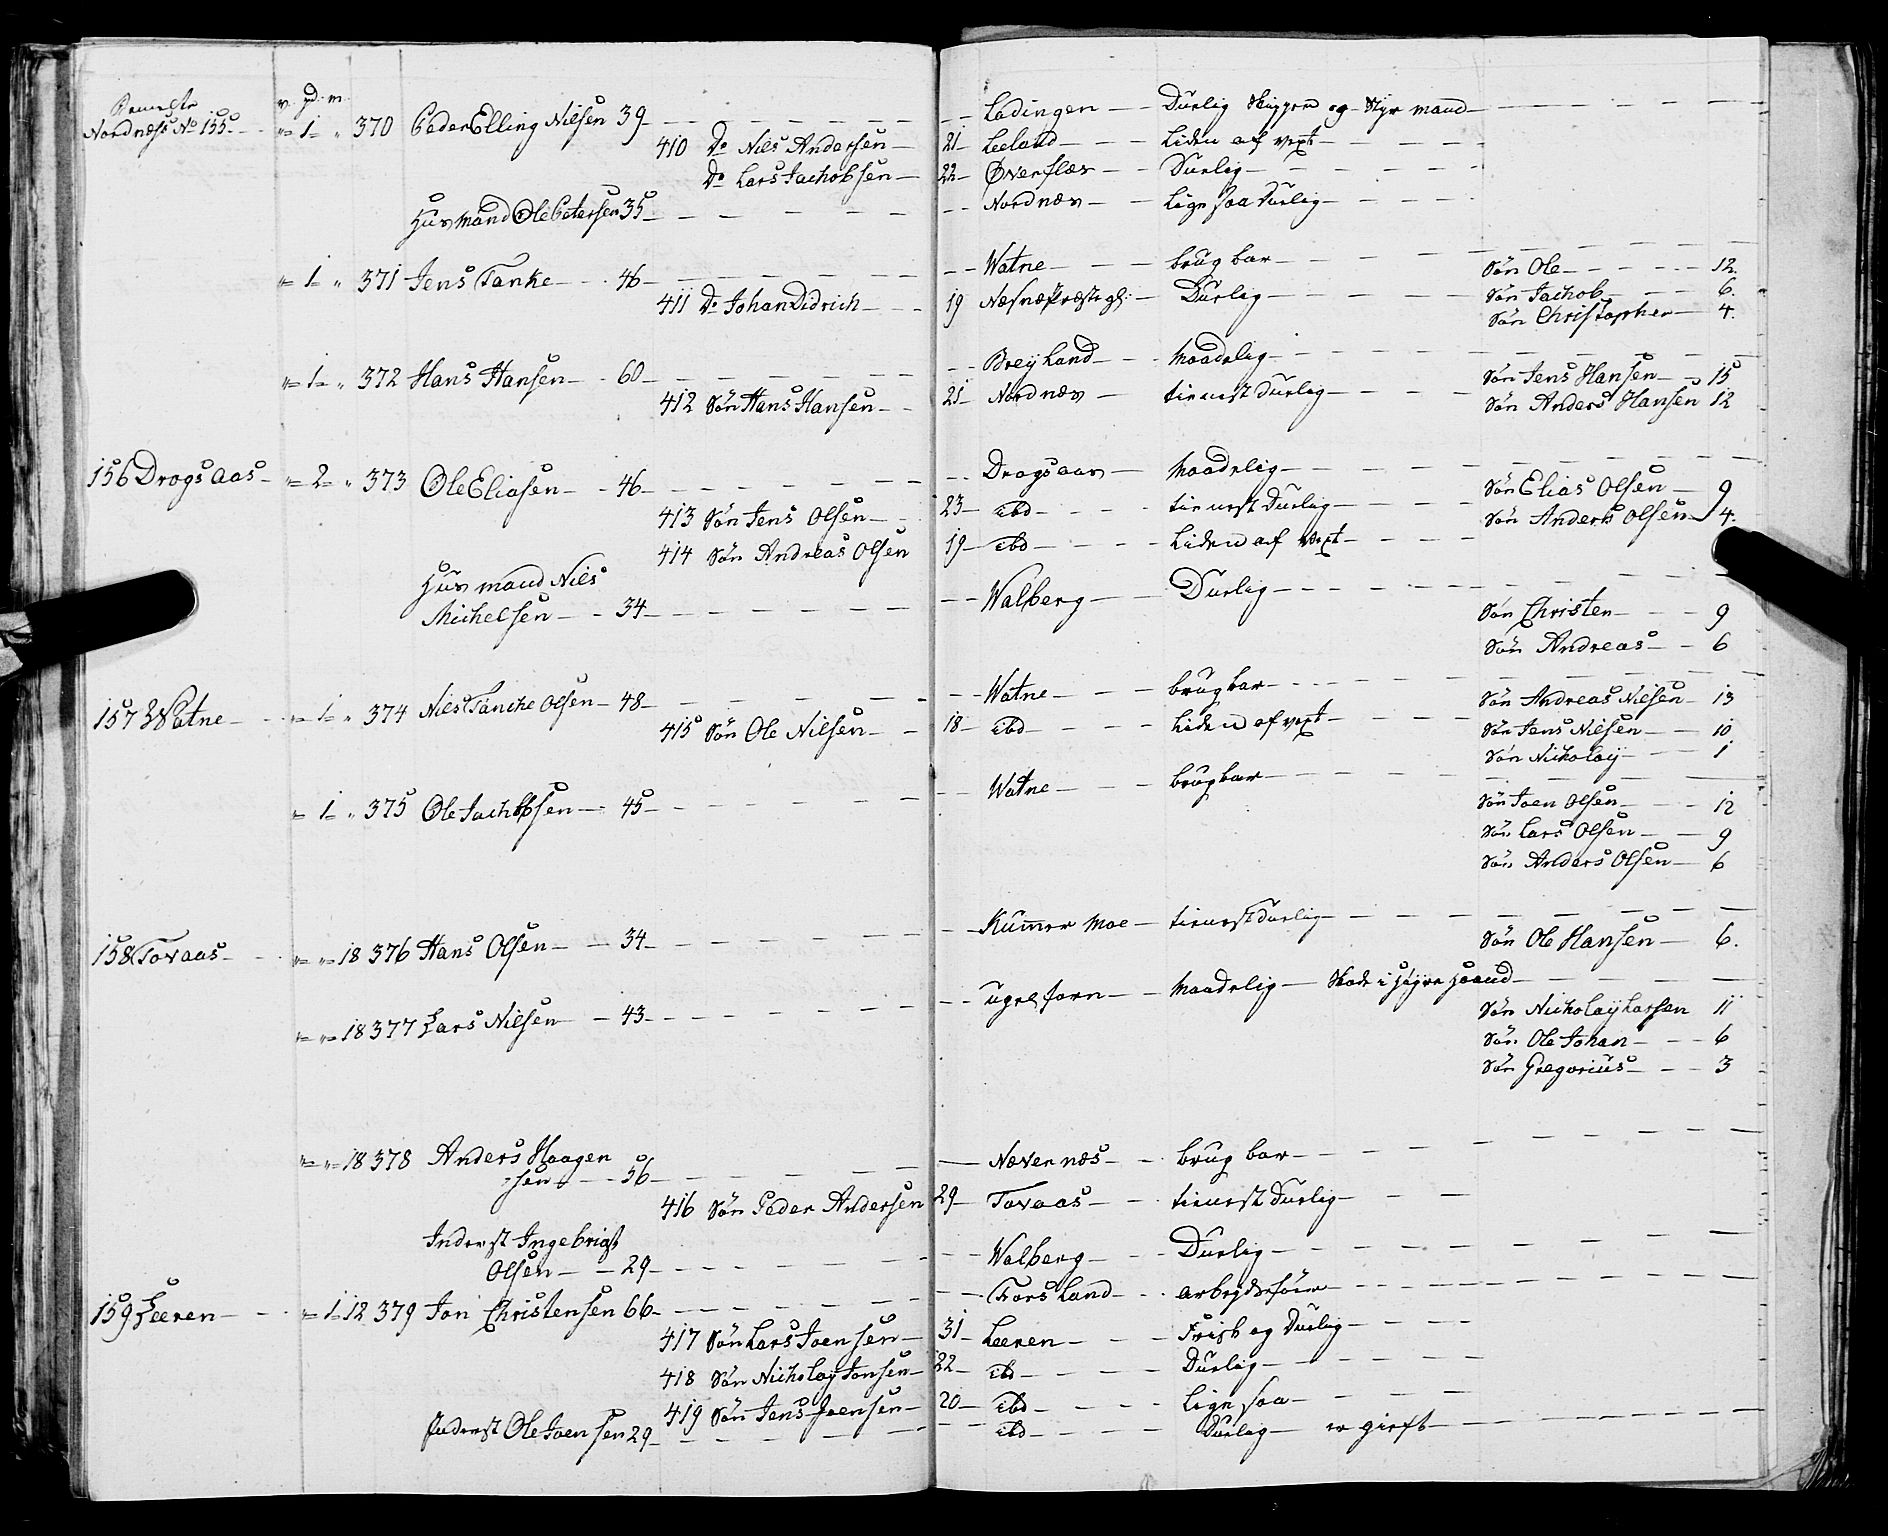 Bemelte v. pd. m.
Nordnæss No 155 " 1 " 370 Peder Elling Nilsen 39 Lødingen Duelig Skipper og Styrmand
410 Do Nils Andersen 21 Leeland Liden af vext
Do Lars Jachobsen 22 Øverflæs Duelig
Huusmand Ole Petersen 35 Nordnæs Lige saa Duelig
" 1 " 371 Jens Tanke 46 Watne brugbar Søn Ole 12.
411 Do Johan Didrich 19 Næsne Præstegl: Duelig Søn Jachob 6.
Søn Christopher 4.
" 1 " 372 Hans Hansen 60 Breyland Maadelig Søn Jens Hansen 15
412 Søn Hans Hansen 21 Nordnæs tienest Duelig Søn Anders Hansen 12
156 Drogsaas " 2 " 373 Ole Eliasen 46 Drogsaas Maadelig Søn Elias Olsen 9
413 Søn Jens Olsen 23 ibd tienest Duelig Søn Anders Olsen 4.
414 Søn Andreas Olsen 19 ibd Liden af vext
Huusmand Niels
Michelsen 34 Walberg Duelig Søn Christen 9
Søn Andreas 6
157 Watne " 1 " 374 Niels Tanche Olsen 48 Watne brugbar Søn Andreas Nielsen 13
415 Søn Ole Nilsen 18 ibd Liden af vext Søn Jens Nielsen 10
Søn Nicholay 1
" 1 " 375 Ole Jachobsen 45 Watne brugbar Søn Joen Olsen 12
Søn Lars Olsen 9
Søn Anders Olsen 6
158 Tovaas " " 18 376 Hans Olsen 34 Kummer Moe tienest Duelig Søn Ole Hansen 6.
" " 18 377 Lars Nilsen 43 Ugelfarn Maadelig Skade i Høyre Haand
Søn Nicholay Larsen 11
Søn Ole Johan 6
Søn Gregorius 3
" " 18 378 Anders Haagen
sen 56 Nævernæs brugbar
416 Søn Peder Andersen 29 Tovaas tienest Duelig
Inderst Ingebrigt
Olsen 29 Walberg Duelig
159 Leeren " 1 12 379 Jon Christensen 66 Forsland arbeydsfør
417 Søn Lars Joensen 31 Leeren Frisk og Duelig
418 Søn Nicholay Jonsen 22 ibd Duelig
419 Søn Jens Joensen 20 ibd Lige saa
Inderst Ole Joensen 29 ibd Duelig er gieft